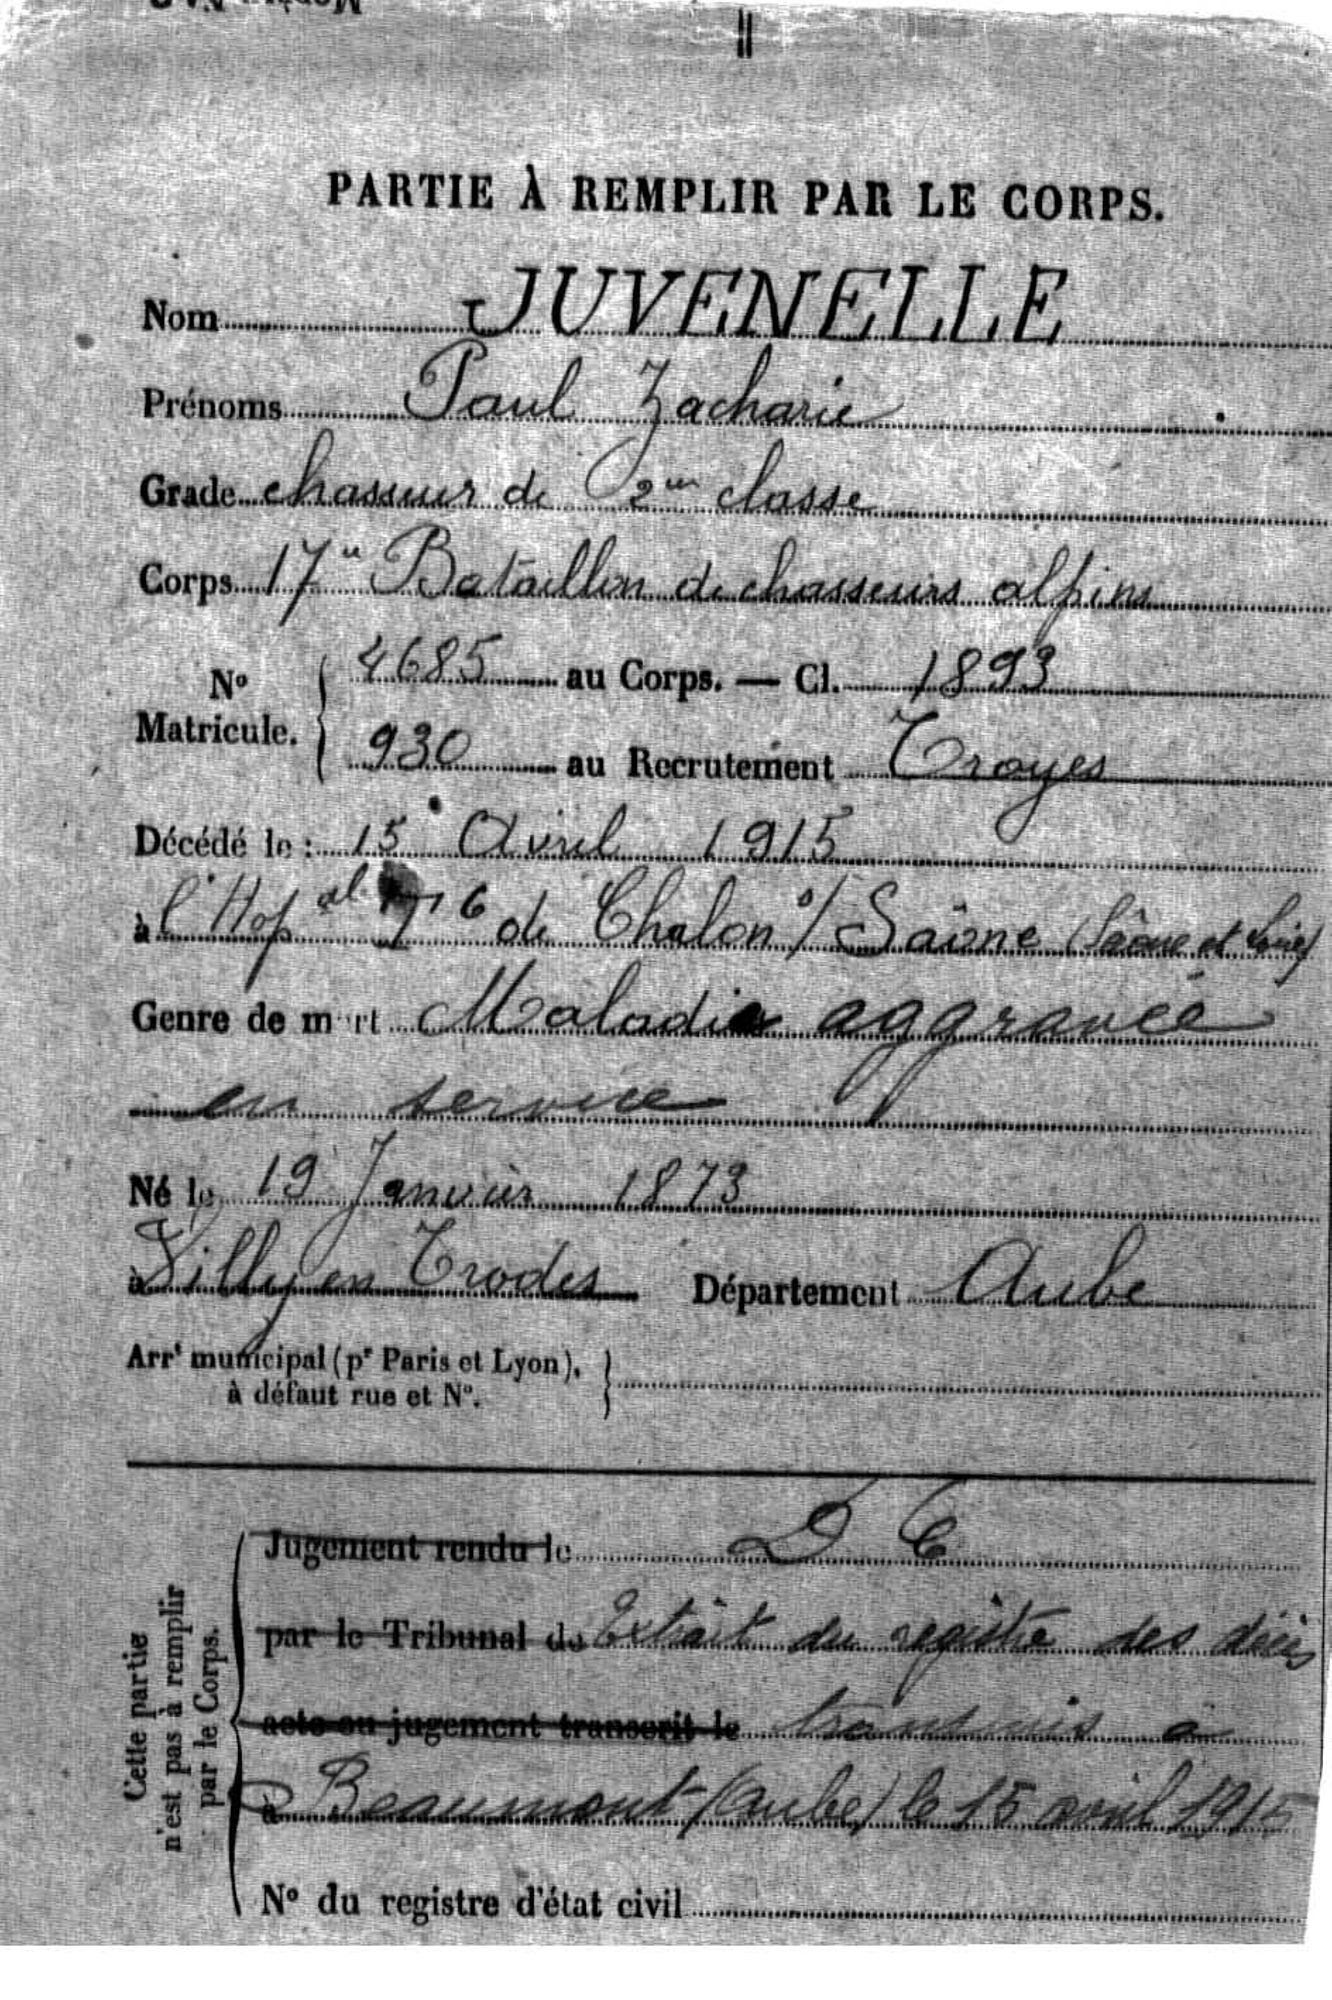 PARTIE À REMPLIR PAR LE CORPS.
Nom JUVENELLE
Prénoms Paul Zacharie
Grade chasseur de 2me classe
Corps 17e Bataillon de chasseurs alpins
No Matricule. 4685 au Corps. — Cl. 1893
930 au Recrutement Troyes
Décédé le : 15 Avril 1915
à l'Hopal T 6 de Chalon s/ Saône (Saône et Loire)
Genre de mort Maladie aggravée
en service
Né le 19 Janvier 1873
à Villy en Trodes Département Aube
Arrt municipal (pr Paris et Lyon),
à défaut rue et No.
Cette partie
n'est pas à remplir
par le Corps.
Jugement rendu le D C
par le Tribunal de Extrait du registre des décès
acte ou jugement transcrit le transmis à
à Beaumont (Aube) le 15 avril 1915
No du registre d'état civil